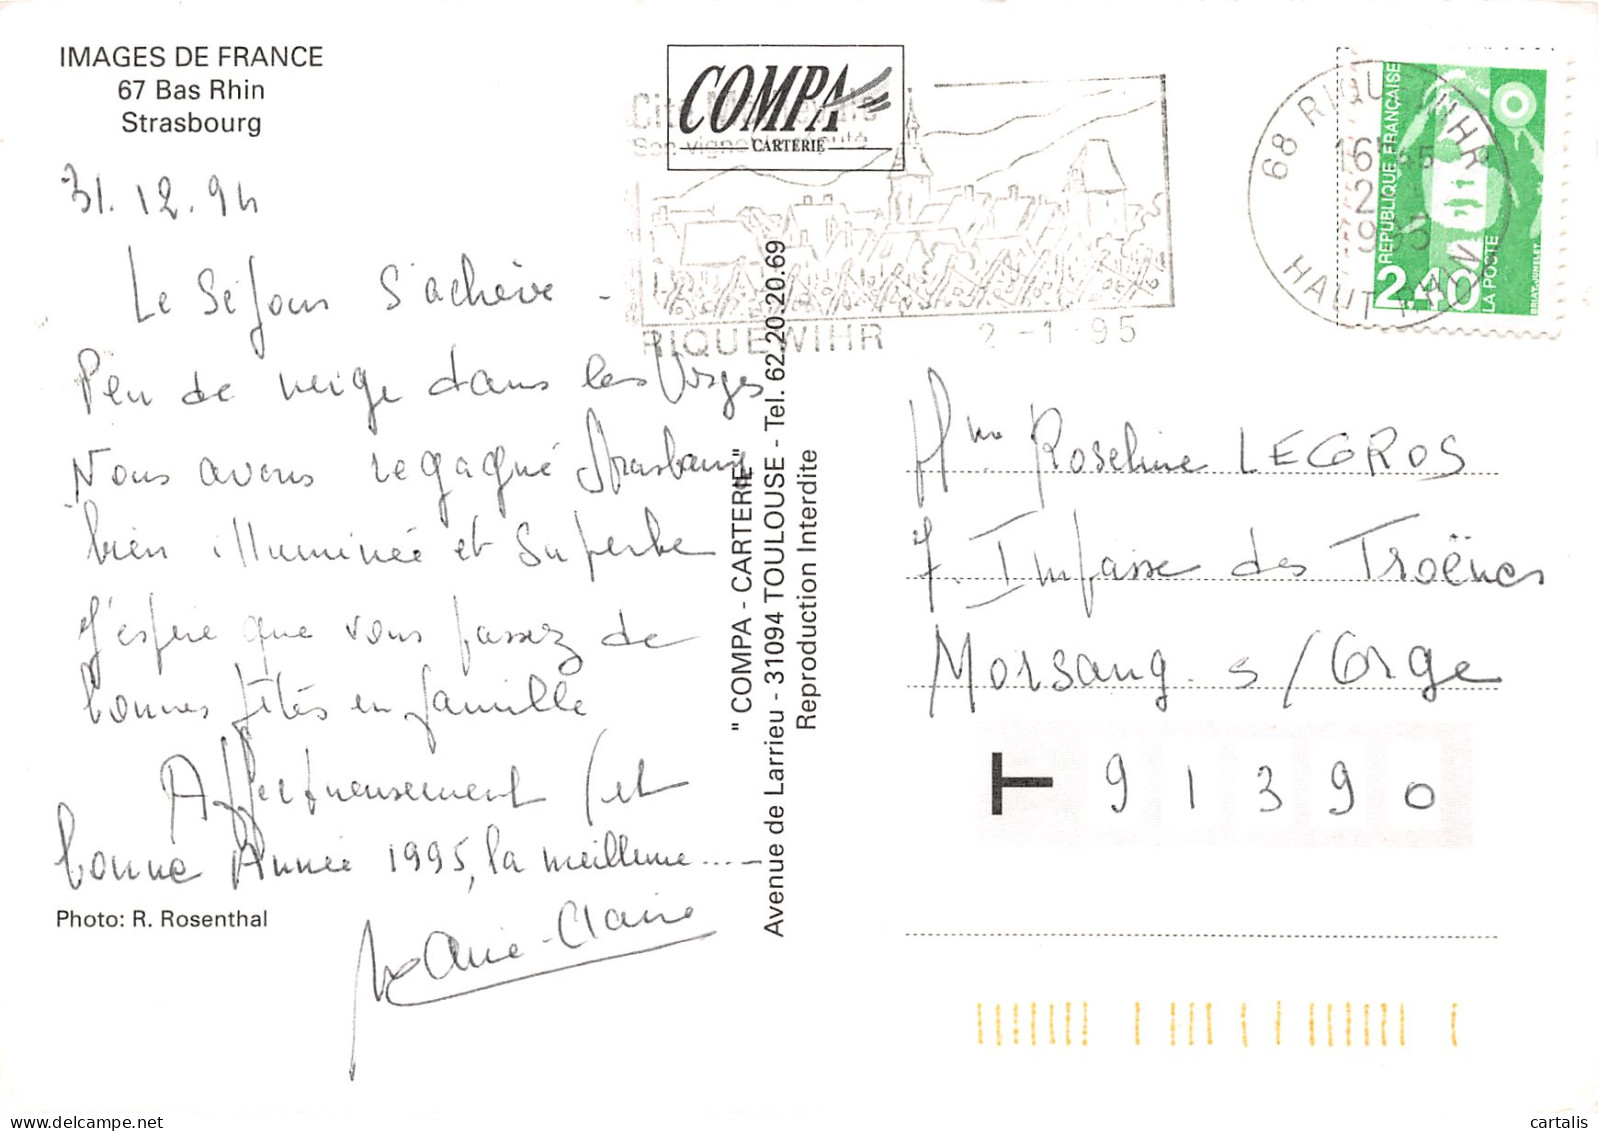 IMAGES DE FRANCE
67 Bas Rhin
Strasbourg
31.12.94
Le Séjour s'achève -
Peu de neige dans les Vosges
Nous avons regagné Strasbourg
bien illuminée et superbe
J'espère que vous passez de
bonnes fêtes en famille
Affectueusement (et
bonne Année 1995, la meilleure ....
Photo: R. Rosenthal
Marie-Claire
COMPA
CARTERIE
RIQUEWIHR 2-1-95
68 RIQUEWIHR
HAUT RHIN
RÉPUBLIQUE FRANÇAISE
2,40
LA POSTE
BRIAT-JUMELET
" COMPA - CARTERIE"
Avenue de Larrieu - 31094 TOULOUSE - Tel. 62.20.20.69
Reproduction Interdite
Mme Roseline LEGROS
7. Impasse des Troënes
Morsang s/Orge
91390
Delcampe.net
cartalis